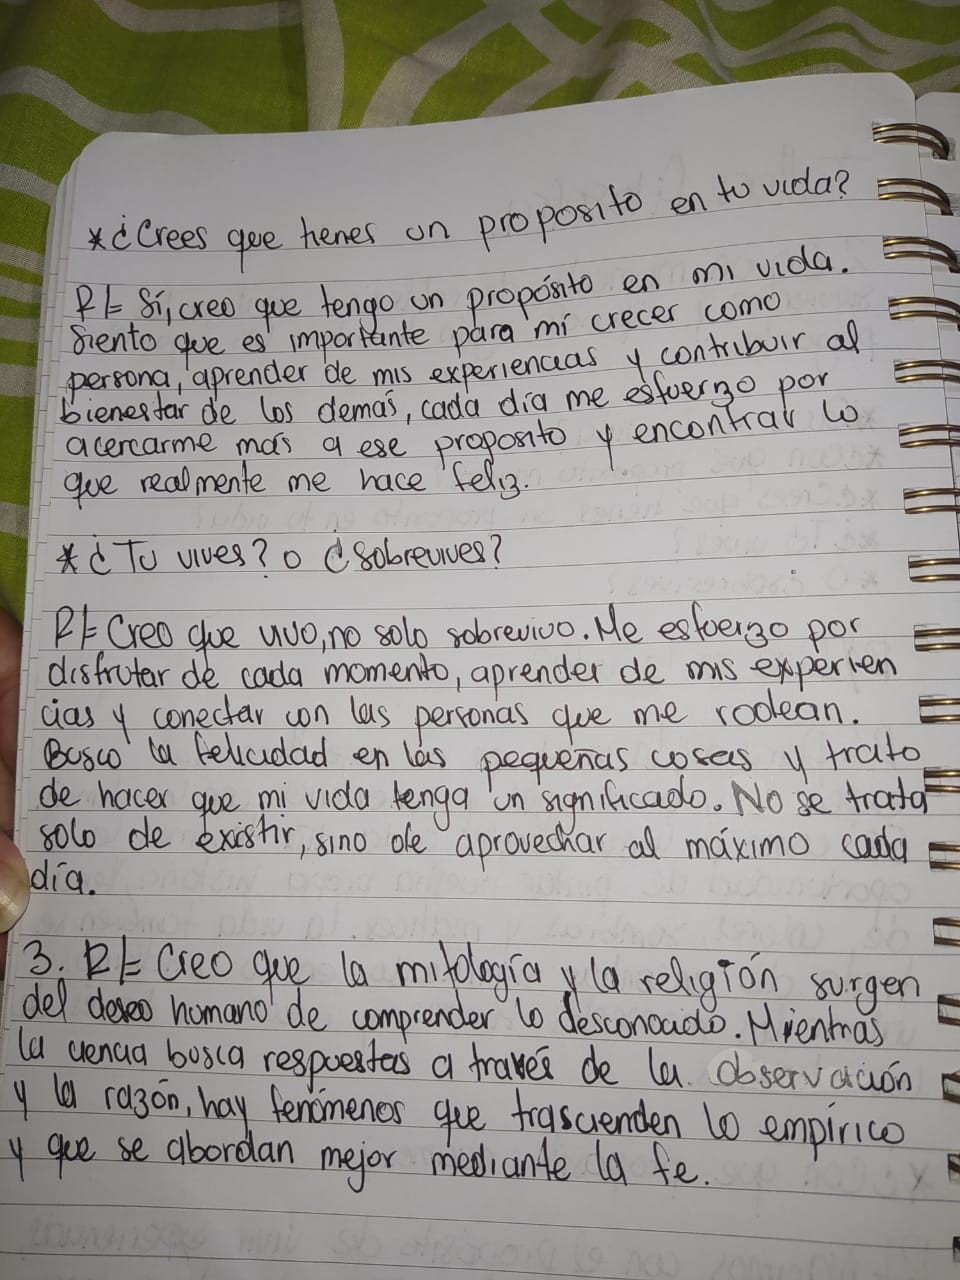 *¿Crees que tienes un proposito en tu vida?
R/= Sí, creo que tengo un propósito en mi vida.
Siento que es importante para mí crecer como
persona, aprender de mis experiencias y contribuir al
bienestar de los demás, cada día me esfuerzo por
acercarme más a ese proposito y encontrar lo
que realmente me hace feliz.
*¿Tu vives? o ¿Sobrevives?
R/= Creo que vivo, no solo sobrevivo. Me esfuerzo por
disfrutar de cada momento, aprender de mis experien
cias y conectar con las personas que me rodean.
Busco la felicidad en las pequeñas cosas y trato
de hacer que mi vida tenga un significado. No se trata
solo de existir, sino de aprovechar al máximo cada
día.
3. R/= Creo que la mitología y la religión surgen
del deseo humano de comprender lo desconocido. Mientras
la ciencia busca respuestas a través de la observación
y la razón, hay fenómenos que trascienden lo empírico
y que se abordan mejor mediante la fe.